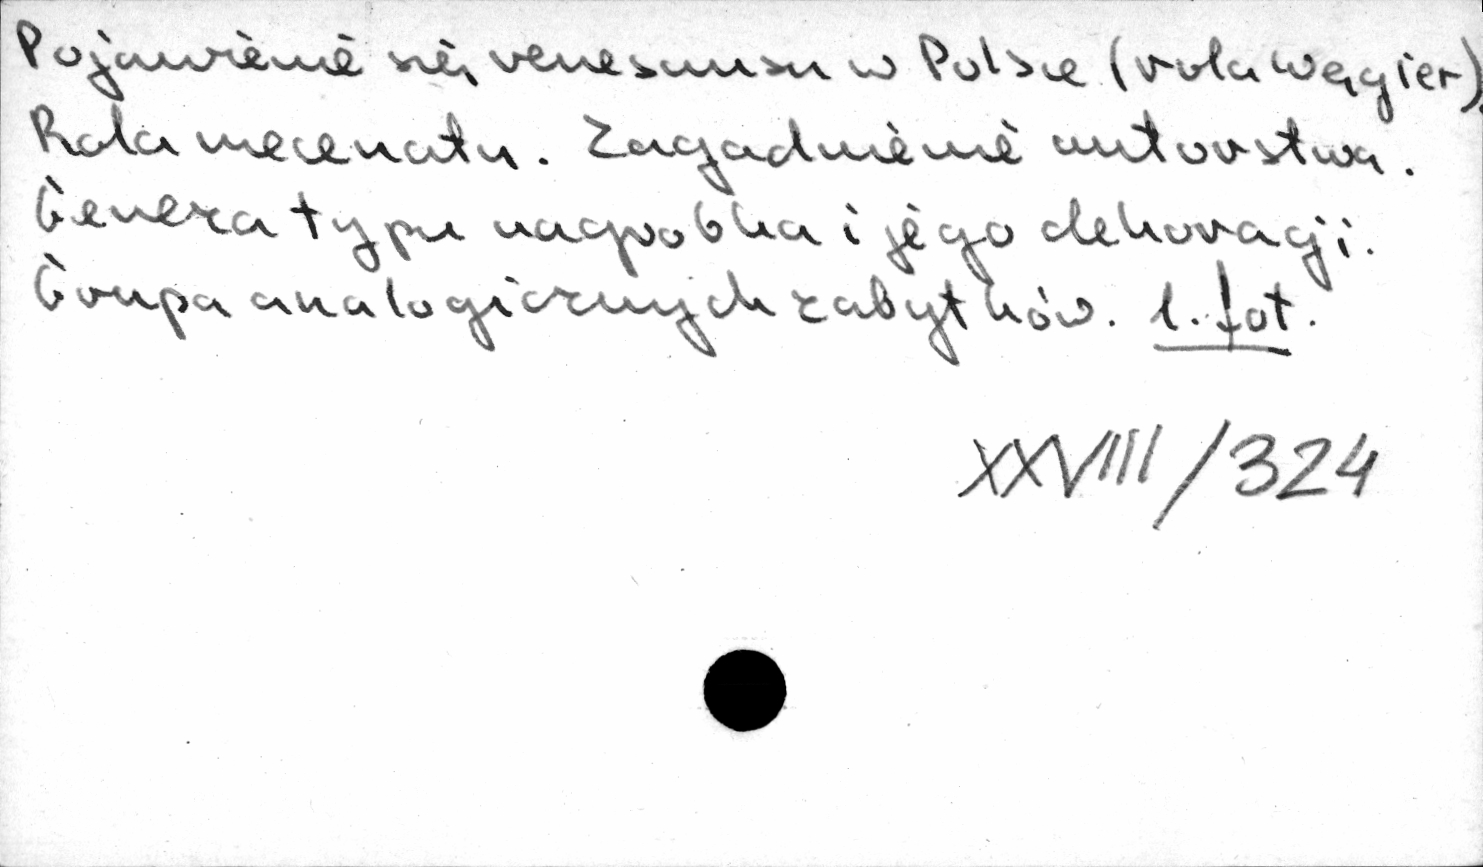 Pojawienie się renesansu w Polsce (rola Węgier).
Rola mecenatu. Zagadnienie autorstwa.
Geneza typu nagrobka i jego dekoracji.
Grupa analogicznych zabytków. 1. fot.
XXVIII/324